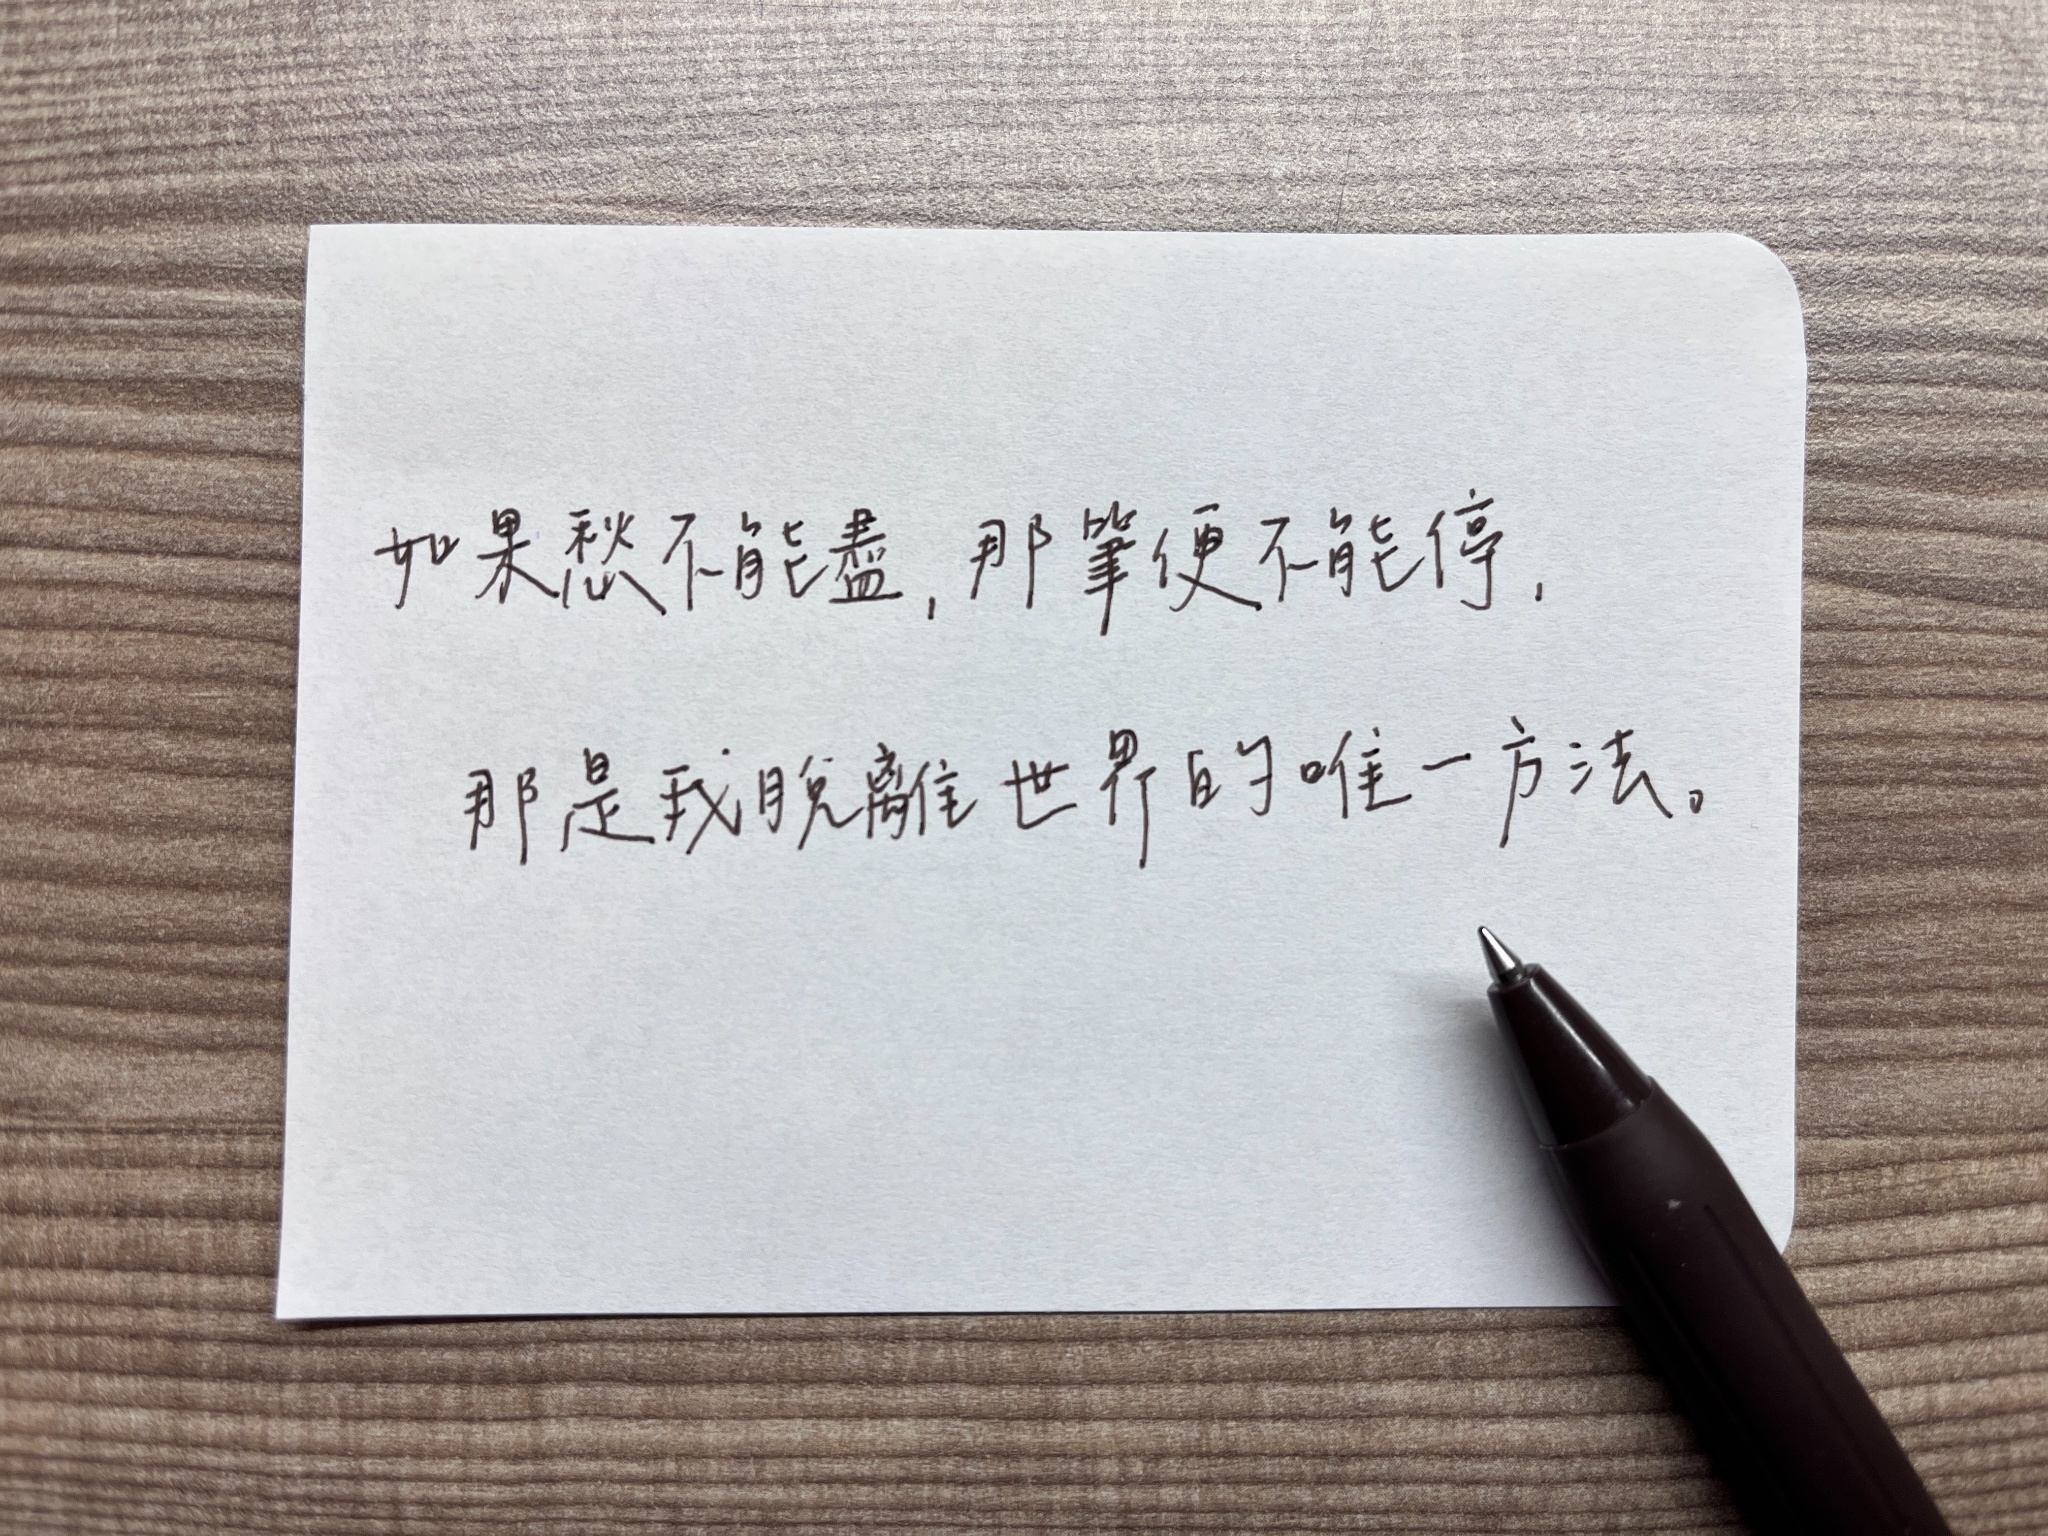 如果愁不能盡,那筆便不能停,
那是我脫離世界的唯一方法。